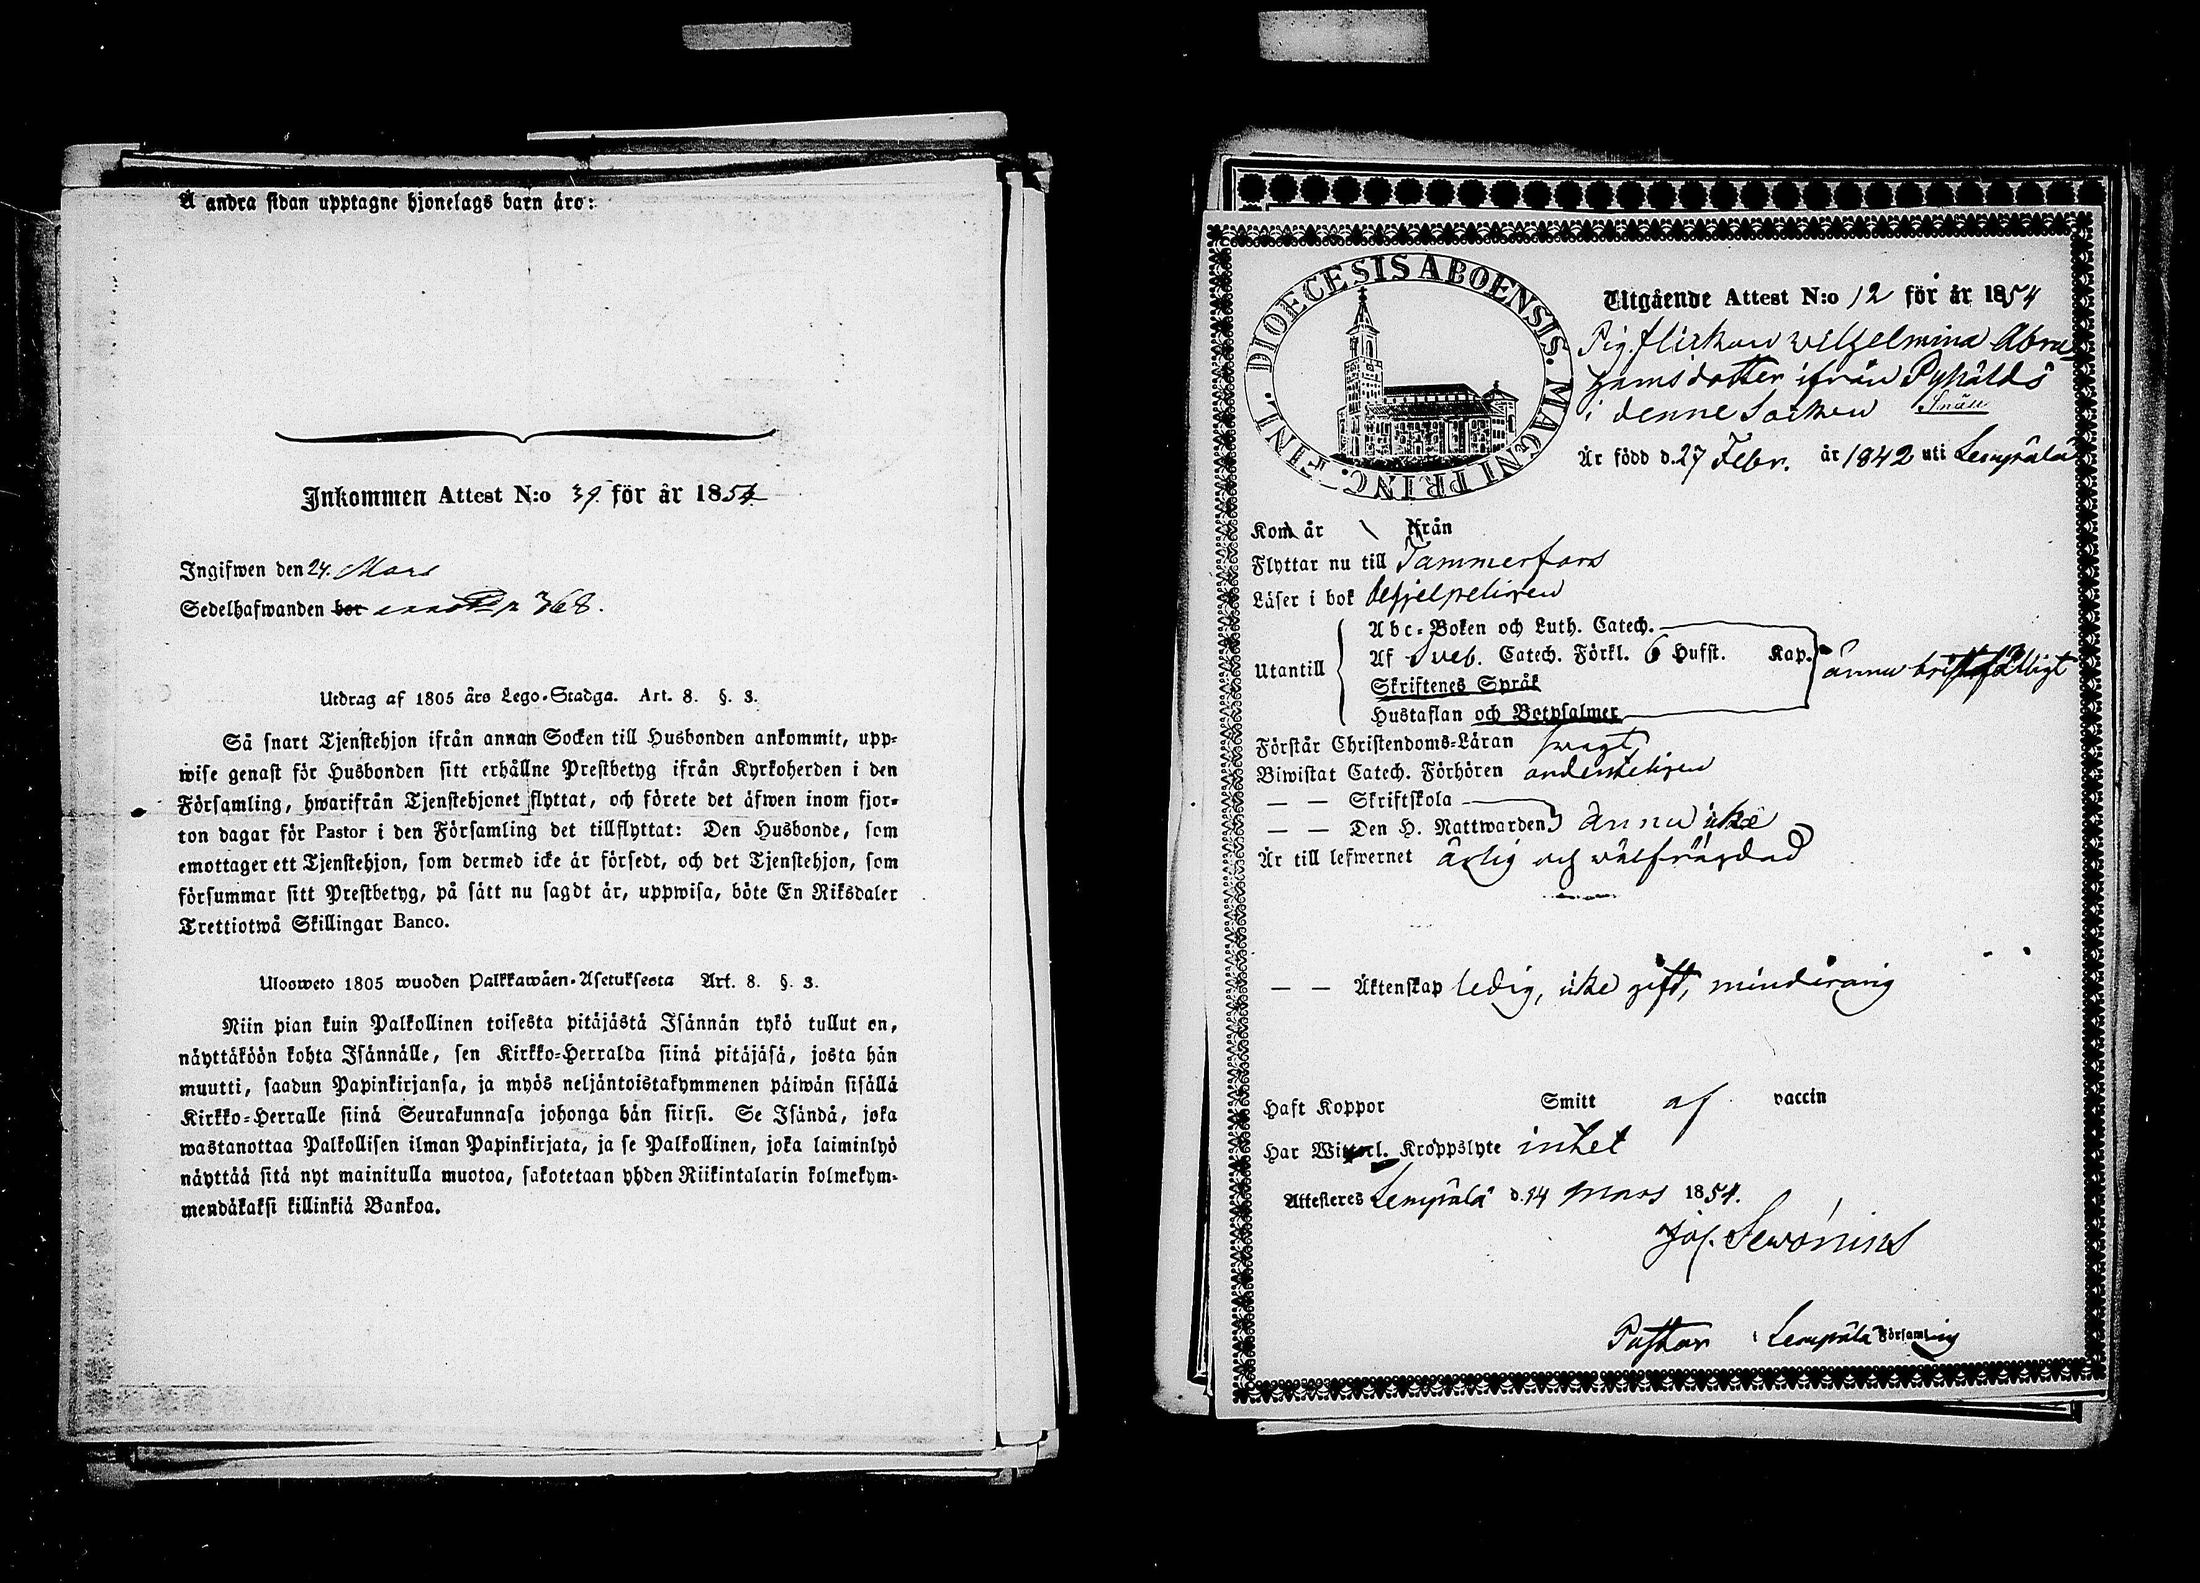 Å andra sidan upptagne hjonelags barn äro:
Inkommen Attest N:o 39. för år 1854
Ingifwen den 24. Mars
Sedelhafwanden bor p 368.
Utdrag af 1805 års Lego-Stadga. Art. 8. §. 3.
Så snart Tjenstehjon ifrån annan Socken till Husbonden ankommit, upp-
wise genast för Husbonden sitt erhållne Prestbetyg ifrån Kyrkoherden i den
Församling, hwarifrån Tjenstehjonet flyttat, och förete det äfwen inom fjor-
ton dagar för Pastor i den Församling det tillflyttat: Den Husbonde, som
emottager ett Tjenstehjon, som dermed icke är försedt, och det Tjenstehjon, som
försummar sitt Prestbetyg, på sätt nu sagdt är, uppwisa, böte En Riksdaler
Trettiotwå Skillingar Banco.
Ulosweto 1805 wuoden Palkkawäen-Asetuksesta Art. 8. §. 3.
Niin pian kuin Palkollinen toisesta pitäjästä Isännän tykö tullut on,
näyttäköön kohta Isännälle, sen Kirkko-Herralda siinä pitäjäsä, josta hän
muutti, saadun Papinkirjansa, ja myös neljäntoistakymmenen päiwän sisällä
Kirkko-Herralle siinä Seurakunnasa johonga hän siirsi. Se Isändä, joka
wastanottaa Palkollisen ilman Papinkirjata, ja se Palkollinen, joka laiminlyö
näyttää sitä nyt mainitulla muotoa, sakotetaan yhden Riikintalarin kolmekym-
mendäkaksi killinkiä Bankoa.
DIOECESIS ABOENSIS. MAGNI PRINC. FINL.
Utgående Attest N:o 12 för år 1854
Pig.flickan Wilhelmina Abra
hamsdotter ifrån Pyhälds
i denne Socken Snäll
Är född d. 27 Febr. år 1842 uti Lempälä
Kom år från
Flyttar nu till Tammerfors
Läser i bok behjelpeligen
Abc-Boken och Luth. Catech.
Utantill Af Sveb. Catech. Förkl. 6 Hufst. Kap. ännu bristfälligt
Skriftenes Språk
Hustaflan och Botpsalmer
Förstår Christendoms-Läran svagt,
Biwistat Catech. Förhören ordenteligen
— — Skriftskola
— — Den H. Nattwarden ännu icke
Är till lefwernet ärlig och wälfrägdad
— — Äktenskap ledig, icke gift, minderårig
Haft Koppor Smitt af vaccin
Har Witterl. Kroppslyte intet
Attesteres Lempälä d. 14 Mars 1854.
Jos. Sewónius
Pastor i Lempälä Församling